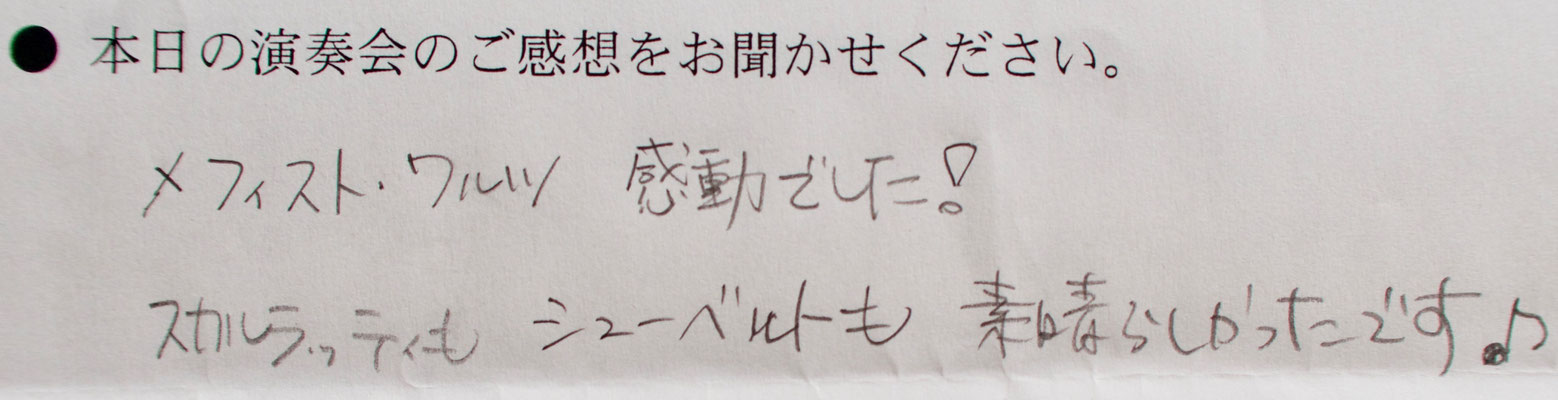 ● 本日の演奏会のご感想をお聞かせください。
メフィスト・ワルツ 感動でした!
スカルラッティも シューベルトも 素晴らしかったです♪